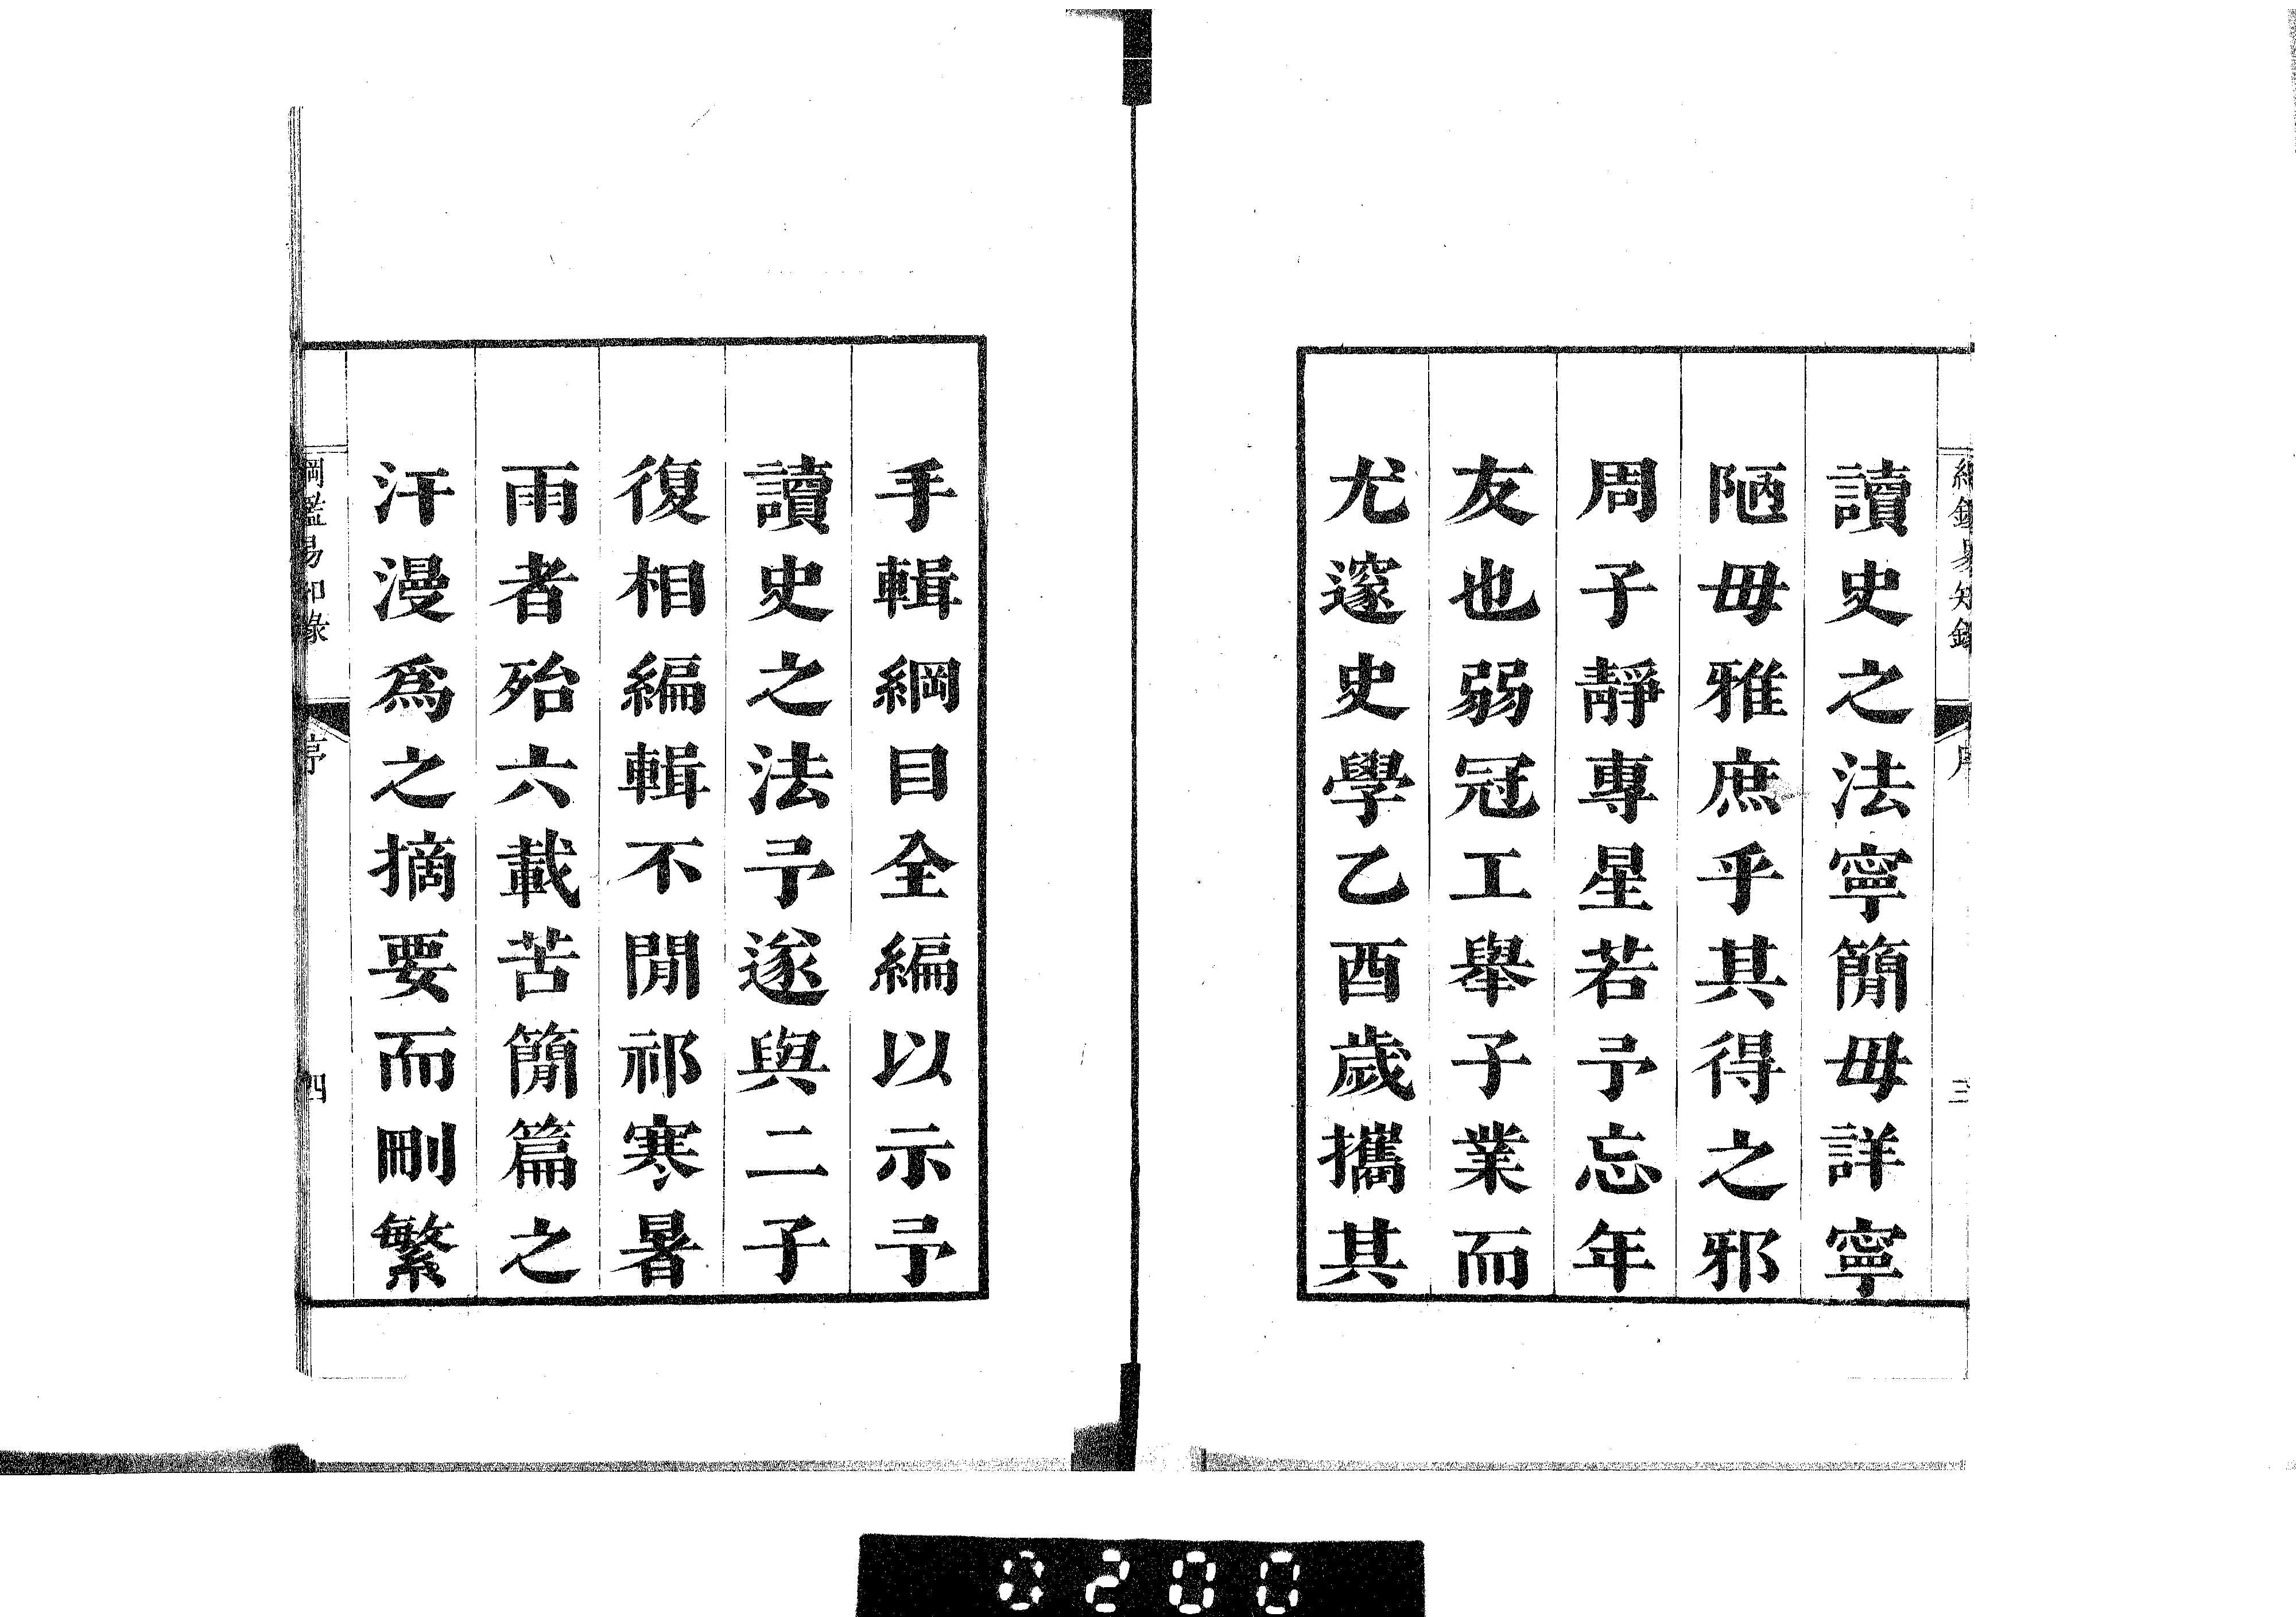 讀史之法寧簡毋詳寧
陋毋雅庶乎其得之邪
周子靜專星若予忘年
友也弱冠工舉子業而
尤邃史學乙酉歲攜其
手輯綱目全編以示予
讀史之法予遂與二子
復相編輯不閒祁寒暑
雨者殆六載苦簡篇之
汗漫爲之摘要而刪繁
綱鑑易知錄
序
四
0200